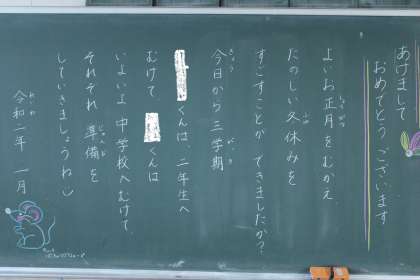 あけまして
おめでとう ございます
よいお正月をむかえ
しょうがつ
たのしい冬休みを
ふゆ
すごすことができましたか?
今日から 三学期
きょう
がっき
くんは、二年生へ
むけて、
くんは
いよいよ 中学校へむけて、
それぞれ 準備を
じゅんび
していきましょうね
令和二年 一月
れいわ